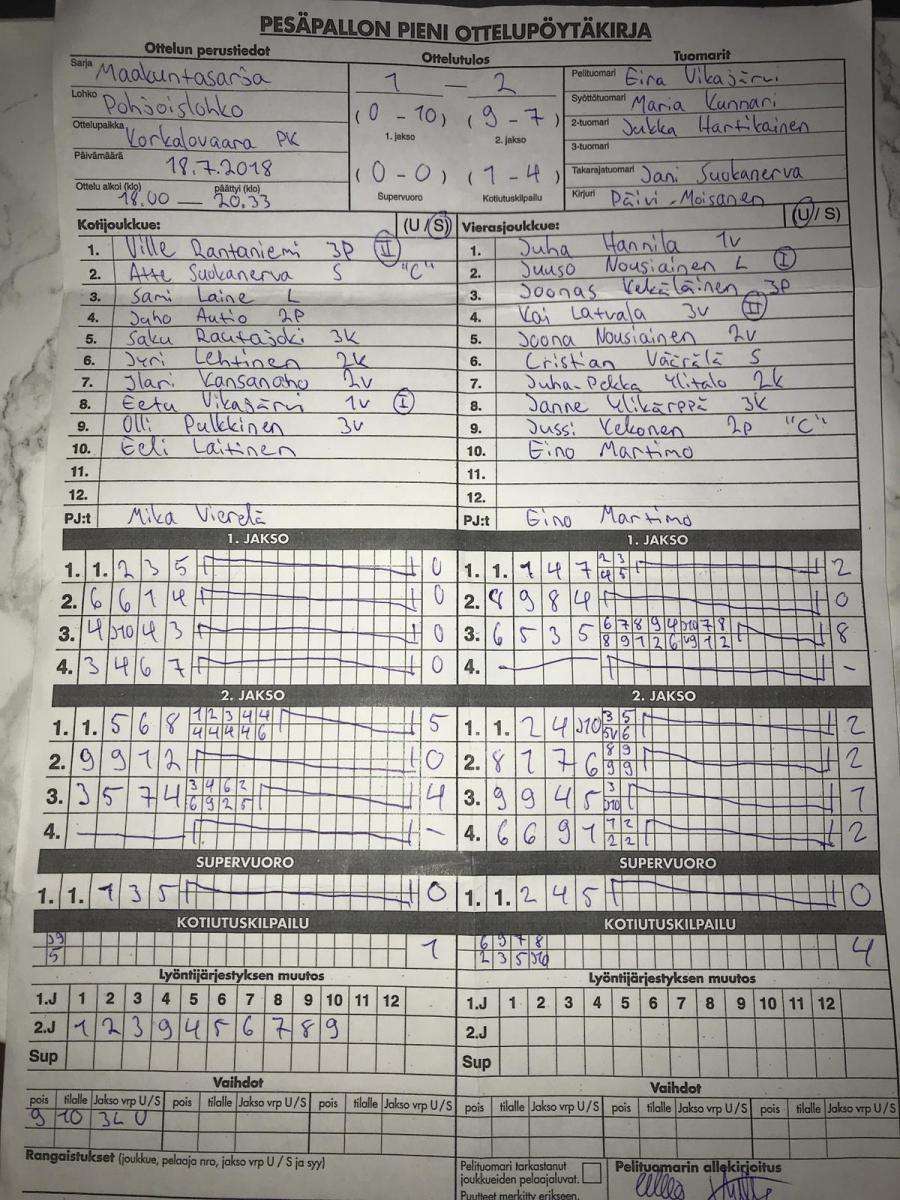 PESÄPALLON PIENI OTTELUPÖYTÄKIRJA
Ottelun perustiedot
Ottelutulos
Tuomarit
Sarja Maakuntasarja
Lohko Pohjoislohko
Ottelupaikka Korkalovaara PK
Päivämäärä 18.7.2018
Ottelu alkoi (klo) päättyi (klo)
18.00 — 20.33
1 — 2
(0 - 10) (9 - 7)
1. jakso 2. jakso
(0 - 0) (1 - 4)
Supervuoro Kotiutuskilpailu
Pelituomari Eira Vikajärvi
Syöttötuomari Maria Kunnari
2-tuomari Jukka Hartikainen
3-tuomari
Takarajatuomari Jani Suokanerva
Kirjuri Päivi Moisanen
Kotijoukkue: (U/S)
1. Ville Rantaniemi 3P II
2. Atte Suokanerva S "C"
3. Sami Laine L
4. Juho Autio 2P
5. Saku Rautajoki 3k
6. Jyri Lehtinen 2k
7. Ilari Kansanaho 2v
8. Eetu Vikajärvi 1v I
9. Olli Pulkkinen 3v
10. Eeli Laitinen
11.
12.
PJ:t Mika Vierelä
Vierasjoukkue: (U/S)
1. Juha Hannila 1v
2. Juuso Nousiainen L I
3. Joonas Kekäläinen 3p
4. Kai Latvala 3v II
5. Joona Nousiainen 2v
6. Cristian Väärälä S
7. Juha-Pekka Ylitalo 2k
8. Janne Ylikärppä 3k
9. Jussi Kekonen 2p "C"
10. Eino Martimo
11.
12.
PJ:t Eino Martimo
1. JAKSO
1. 1. 2 3 5 0
2. 6 6 1 4 0
3. 4 J10 4 3 0
4. 3 4 6 7 0
1. JAKSO
1. 1. 1 4 7 2 3 2
4 5
2. 8 9 8 4 0
3. 6 5 3 5 6 7 8 9 4 J10 7 8 8
8 9 1 2 6 1 2
4. — -
2. JAKSO
1. 1. 5 6 8 1 2 3 4 4 5
4 4 4 4 6
2. 9 9 1 2 0
3. 3 5 7 4 3 4 6 2 4
6 9 2 5
4. — -
2. JAKSO
1. 1. 2 4 J10 3 5 2
5v 6
2. 8 1 7 6 8 9 2
9 9
3. 9 9 4 5 3 1
J10
4. 6 6 9 1 1 2 2
2 2
SUPERVUORO
1. 1. 1 3 5 0
SUPERVUORO
1. 1. 2 4 5 0
KOTIUTUSKILPAILU
5 1
KOTIUTUSKILPAILU
6 9 7 8 4
2 3 5 J10
Lyöntijärjestyksen muutos
1.J 1 2 3 4 5 6 7 8 9 10 11 12
2.J 1 2 3 9 4 5 6 7 8 9
Sup
Lyöntijärjestyksen muutos
1.J 1 2 3 4 5 6 7 8 9 10 11 12
2.J
Sup
Vaihdot
pois tilalle Jakso vrp U/S pois tilalle Jakso vrp U/S pois tilalle Jakso vrp U/S
9 10 3L U
Vaihdot
pois tilalle Jakso vrp U/S pois tilalle Jakso vrp U/S pois tilalle Jakso vrp U/S
Rangaistukset (joukkue, pelaaja nro, jakso vrp U / S ja syy)
Pelituomari tarkastanut
joukkueiden pelaajaluvat.
Puutteet merkitty erikseen.
Pelituomarin allekirjoitus